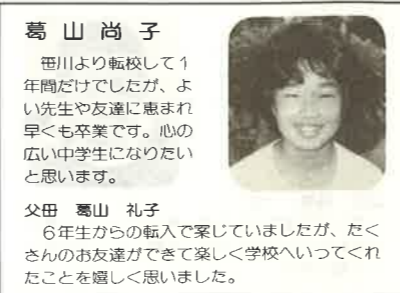 葛山尚子
笹川より転校して1
年間だけでしたが、よ
い先生や友達に恵まれ
早くも卒業です。心の
広い中学生になりたい
と思います。
父母 葛山 礼子
6年生からの転入で案じていましたが、たく
さんのお友達ができて楽しく学校へいってくれ
たことを嬉しく思いました。